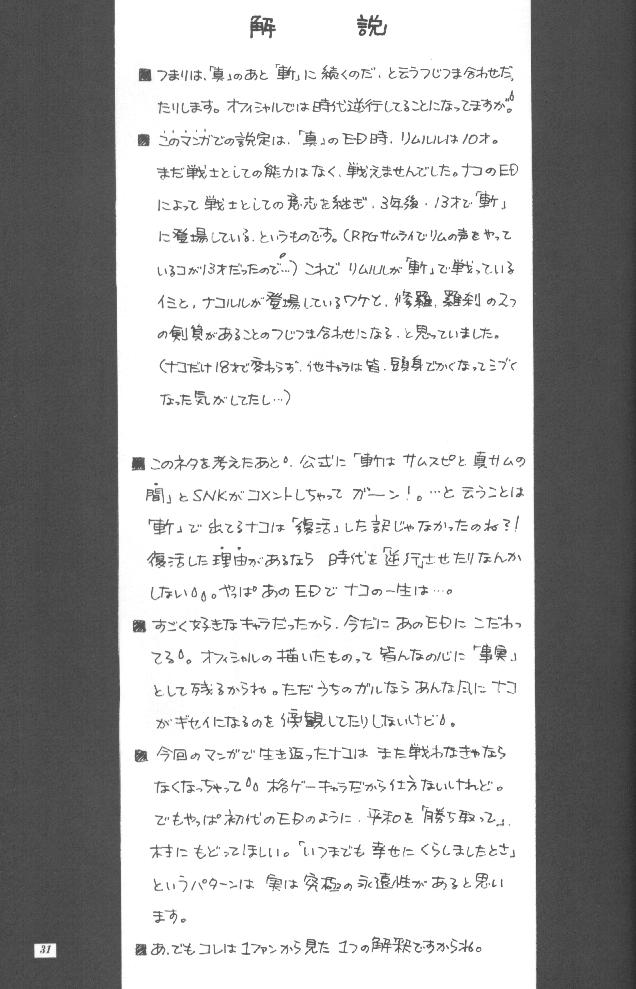 解　説
■つまりは、「真」のあと「斬」に続くのだ、と云うつじつま合わせだ、
たりします。オフィシャルでは時代逆行してることになってますが。
■このマンガでの設定は、「真」のED時、リムルルは10才。
まだ戦士としての能力はなく、戦えませんでした。ナコのED
によって戦士としての意志を継ぎ、3年後・13才で「斬」
に登場している、というものです。(RPGサムライでリムの声をやって
いるコが13才だったので…) これで リムルルが「斬」で戦っている
イミと、ナコルルが登場しているワケと、修羅、羅刹の2つ
の剣質があることのつじつま合わせになる、と思っていました。
(ナコだけ18才で変わらず、他キャラは皆、頭身でかくなってシブく
なった気がしてたし…)
■このネタを考えたあと、公式に「斬は サムスピと 真サムの
間」とSNKがコメントしちゃって ガーン！。…と 云うことは
「斬」で出てるナコは「復活」した訳じゃなかったのね？！
復活した理由があるなら 時代を「逆行」させたりなんか
しない。やっぱ あのEDで ナコの一生は…。
■すごく好きなキャラだったから、今だに あのEDに こだわっ
てる。オフィシャルの描いたものって 皆んなの心に「事実」
として残るからね。ただ うちのガルなら あんな風に ナコ
がギセイになるのを 傍観してたりしないけど。
■今回のマンガで生き返ったナコは また戦わなきゃなら
なくなっちゃって 格ゲーキャラだから仕方ないけれど。
でもやっぱ 初代のEDのように、平和を「勝ち取って」、
村に もどってほしい。「いつまでも 幸せに くらしましたとさ」
というパターンは 実は 究極の永遠性があると思い
ます。
■あ、でもコレは 1ファンから見た 1つの解釈ですからね。
31